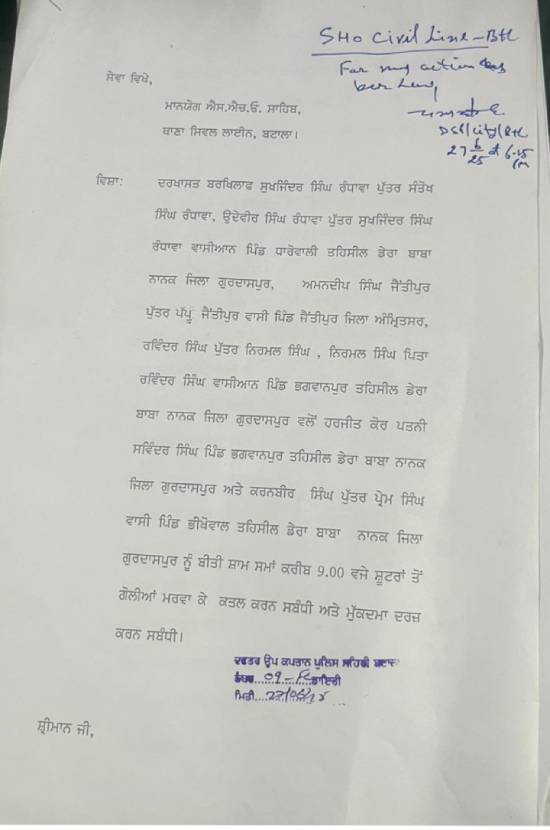 SHO Civil Line - Btl
For
DSP/City/Btl
27/6/25
ਸੇਵਾ ਵਿਖੇ,
ਮਾਨਯੋਗ ਐਸ.ਐਚ.ਓ. ਸਾਹਿਬ,
ਥਾਣਾ ਸਿਵਲ ਲਾਈਨ, ਬਟਾਲਾ।
ਵਿਸ਼ਾ: ਦਰਖਾਸਤ ਬਰਖਿਲਾਫ ਸੁਖਜਿੰਦਰ ਸਿੰਘ ਰੰਧਾਵਾ ਪੁੱਤਰ ਸੰਤੋਖ
ਸਿੰਘ ਰੰਧਾਵਾ, ਉਦੇਵੀਰ ਸਿੰਘ ਰੰਧਾਵਾ ਪੁੱਤਰ ਸੁਖਜਿੰਦਰ ਸਿੰਘ
ਰੰਧਾਵਾ ਵਾਸੀਆਨ ਪਿੰਡ ਧਾਰੋਵਾਲੀ ਤਹਿਸੀਲ ਡੇਰਾ ਬਾਬਾ
ਨਾਨਕ ਜਿਲਾ ਗੁਰਦਾਸਪੁਰ, ਅਮਨਦੀਪ ਸਿੰਘ ਜੈਂਤੀਪੁਰ
ਪੁੱਤਰ ਪੱਪੂ ਜੈਂਤੀਪੁਰ ਵਾਸੀ ਪਿੰਡ ਜੈਂਤੀਪੁਰ ਜਿਲਾ ਅੰਮ੍ਰਿਤਸਰ,
ਰਵਿੰਦਰ ਸਿੰਘ ਪੁੱਤਰ ਨਿਰਮਲ ਸਿੰਘ , ਨਿਰਮਲ ਸਿੰਘ ਪਿਤਾ
ਰਵਿੰਦਰ ਸਿੰਘ ਵਾਸੀਆਨ ਪਿੰਡ ਭਗਵਾਨਪੁਰ ਤਹਿਸੀਲ ਡੇਰਾ
ਬਾਬਾ ਨਾਨਕ ਜਿਲਾ ਗੁਰਦਾਸਪੁਰ ਵਲੋਂ ਹਰਜੀਤ ਕੋਰ ਪਤਨੀ
ਸਵਿੰਦਰ ਸਿੰਘ ਪਿੰਡ ਭਗਵਾਨਪੁਰ ਤਹਿਸੀਲ ਡੇਰਾ ਬਾਬਾ ਨਾਨਕ
ਜਿਲਾ ਗੁਰਦਾਸਪੁਰ ਅਤੇ ਕਰਨਬੀਰ ਸਿੰਘ ਪੁੱਤਰ ਪ੍ਰੇਮ ਸਿੰਘ
ਵਾਸੀ ਪਿੰਡ ਭੀਖੋਵਾਲ ਤਹਿਸੀਲ ਡੇਰਾ ਬਾਬਾ ਨਾਨਕ ਜਿਲਾ
ਗੁਰਦਾਸਪੁਰ ਨੂੰ ਬੀਤੀ ਸ਼ਾਮ ਸਮਾਂ ਕਰੀਬ 9.00 ਵਜੇ ਸ਼ੂਟਰਾਂ ਤੋਂ
ਗੋਲੀਆਂ ਮਰਵਾ ਕੇ ਕਤਲ ਕਰਨ ਸਬੰਧੀ ਅਤੇ ਮੁੱਕਦਮਾ ਦਰਜ਼
ਕਰਨ ਸਬੰਧੀ।
ਦਫਤਰ ਉਪ ਕਪਤਾਨ ਪੁਲਿਸ
ਡਾਇਰੀ
ਮਿਤੀ
ਸ਼੍ਰੀਮਾਨ ਜੀ,